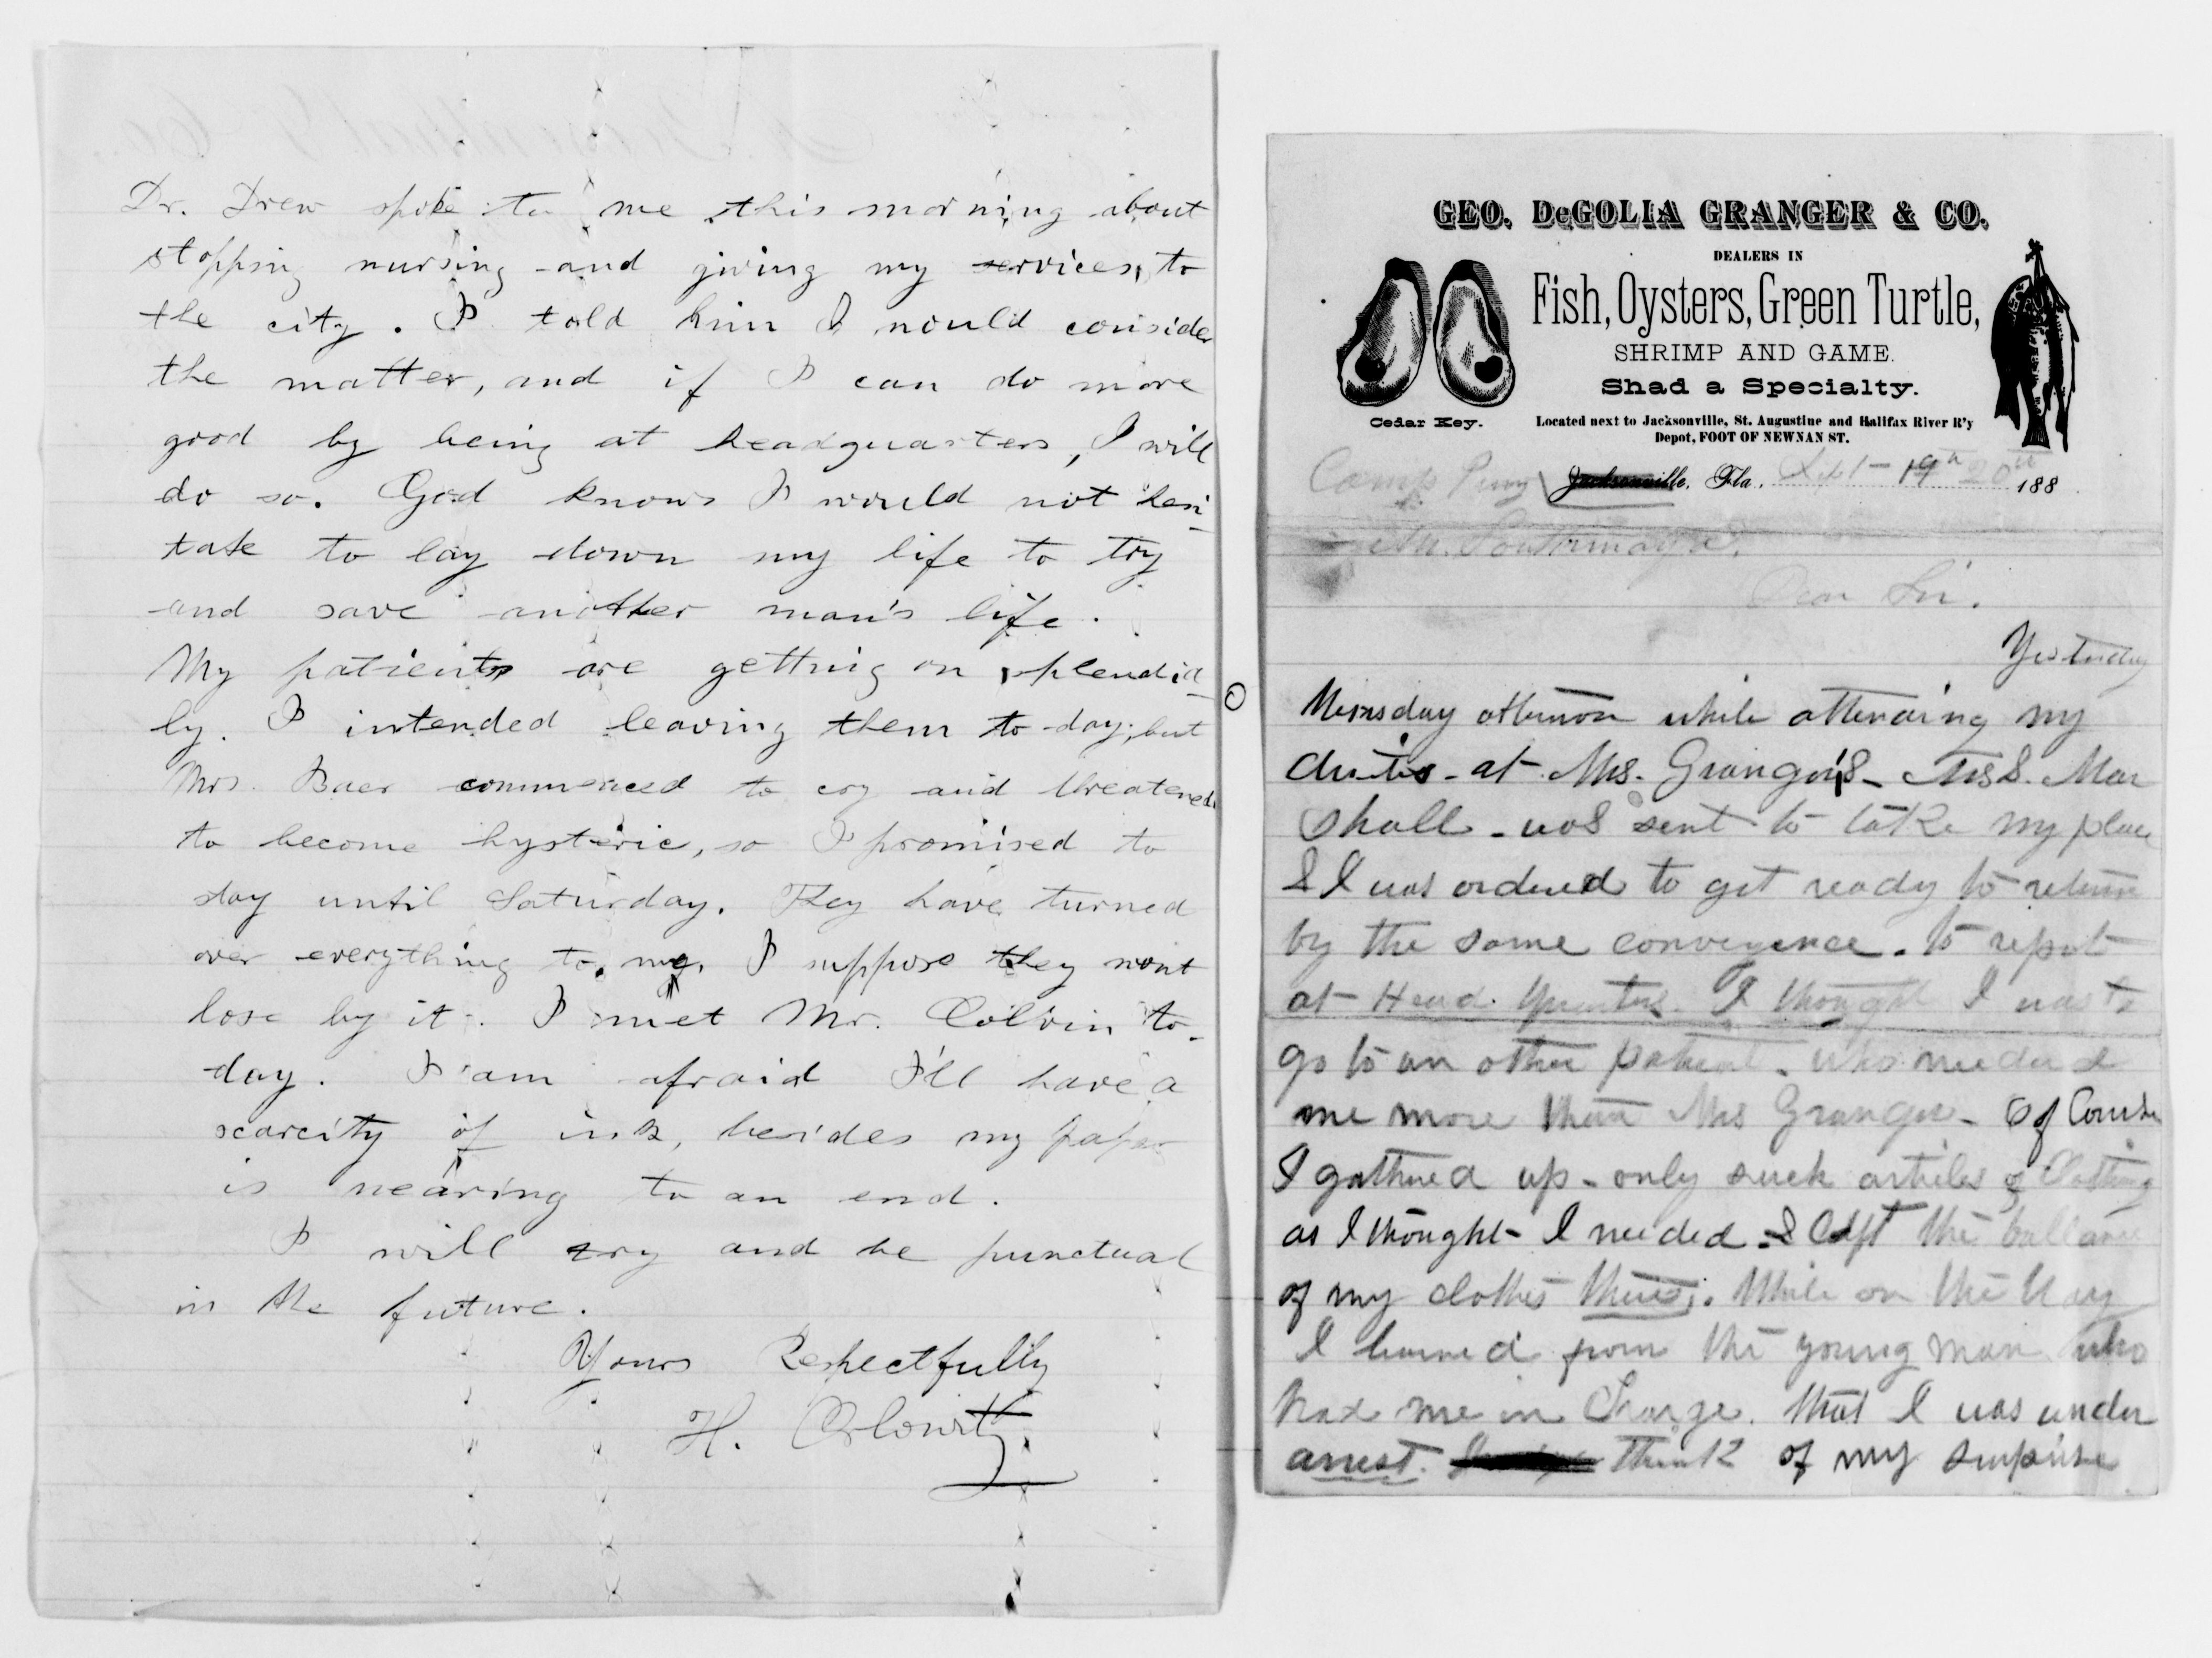 Dr. Drew spoke to me this morning about
stopping nursing and giving my services to
the city. I told him I would consider
the matter, and if I can do more
good by being at headquarters, I will
do so. God knows I would not hesi-
tate to lay down my life to try
and save another man's life.
My patients are getting on splendid-
ly. I intended leaving them to-day, but
Mrs. Baer commenced to cry and threatened
to become hysteric, so I promised to
stay until Saturday. They have turned
over everything to me, I suppose they wont
lose by it. I met Mr. Colvin to-
day. I am afraid I'll have a
scarcity of ink, besides my paper
is nearing to an end.
I will try and be punctual
in the future.
Yours Respectfully
H. Orlowitz
GEO. DeGOLIA GRANGER & CO.
DEALERS IN
Fish, Oysters, Green Turtle,
SHRIMP AND GAME.
Shad a Specialty.
Cedar Key.
Located next to Jacksonville, St. Augustine and Halifax River R'y
Depot, FOOT OF NEWNAN ST.
Camp Perry Jacksonville, Fla., Sept 19th 20th 188
Mr. Southmayd.
Dear Sir.
Yesterday
afternoon while attending my
duties at Mrs. Granger's Mrs. Mar
shall was sent to take my place
& I was ordered to get ready to return
by the same conveyence. to report
at Head Quarters I thought I was to
go to an other patient who needed
me more than Mrs Granger Of Course
I gathered up only such articles of Clothing
as I thought I needed & left the ballance
of my clothes there. While on the Way
I learned from the young man who
had me in Charge. that I was under
arrest. think of my surprise